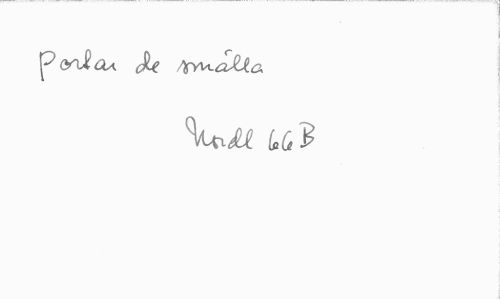 Portar de smälla
Nordl 66B